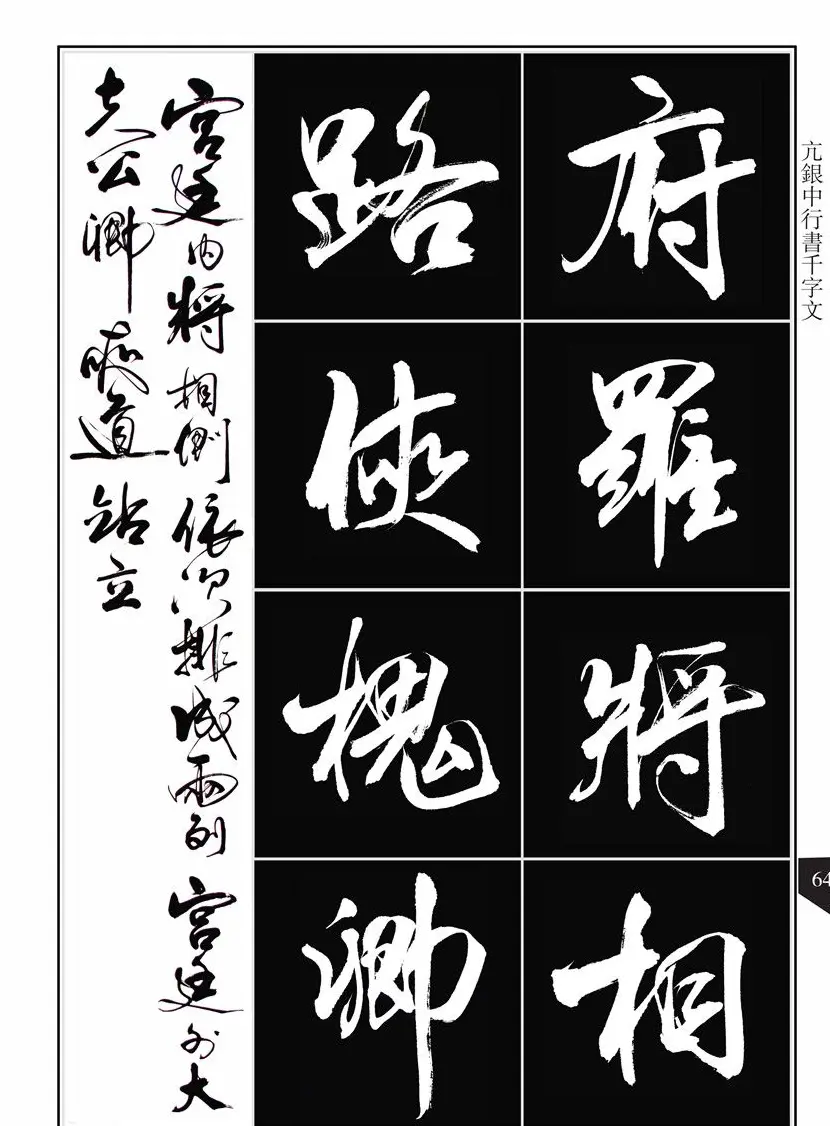 亢銀中行書千字文
64
府羅將相
路俠槐卿
宮廷内將相側依次排成兩列宮廷外大
夫公卿夾道站立